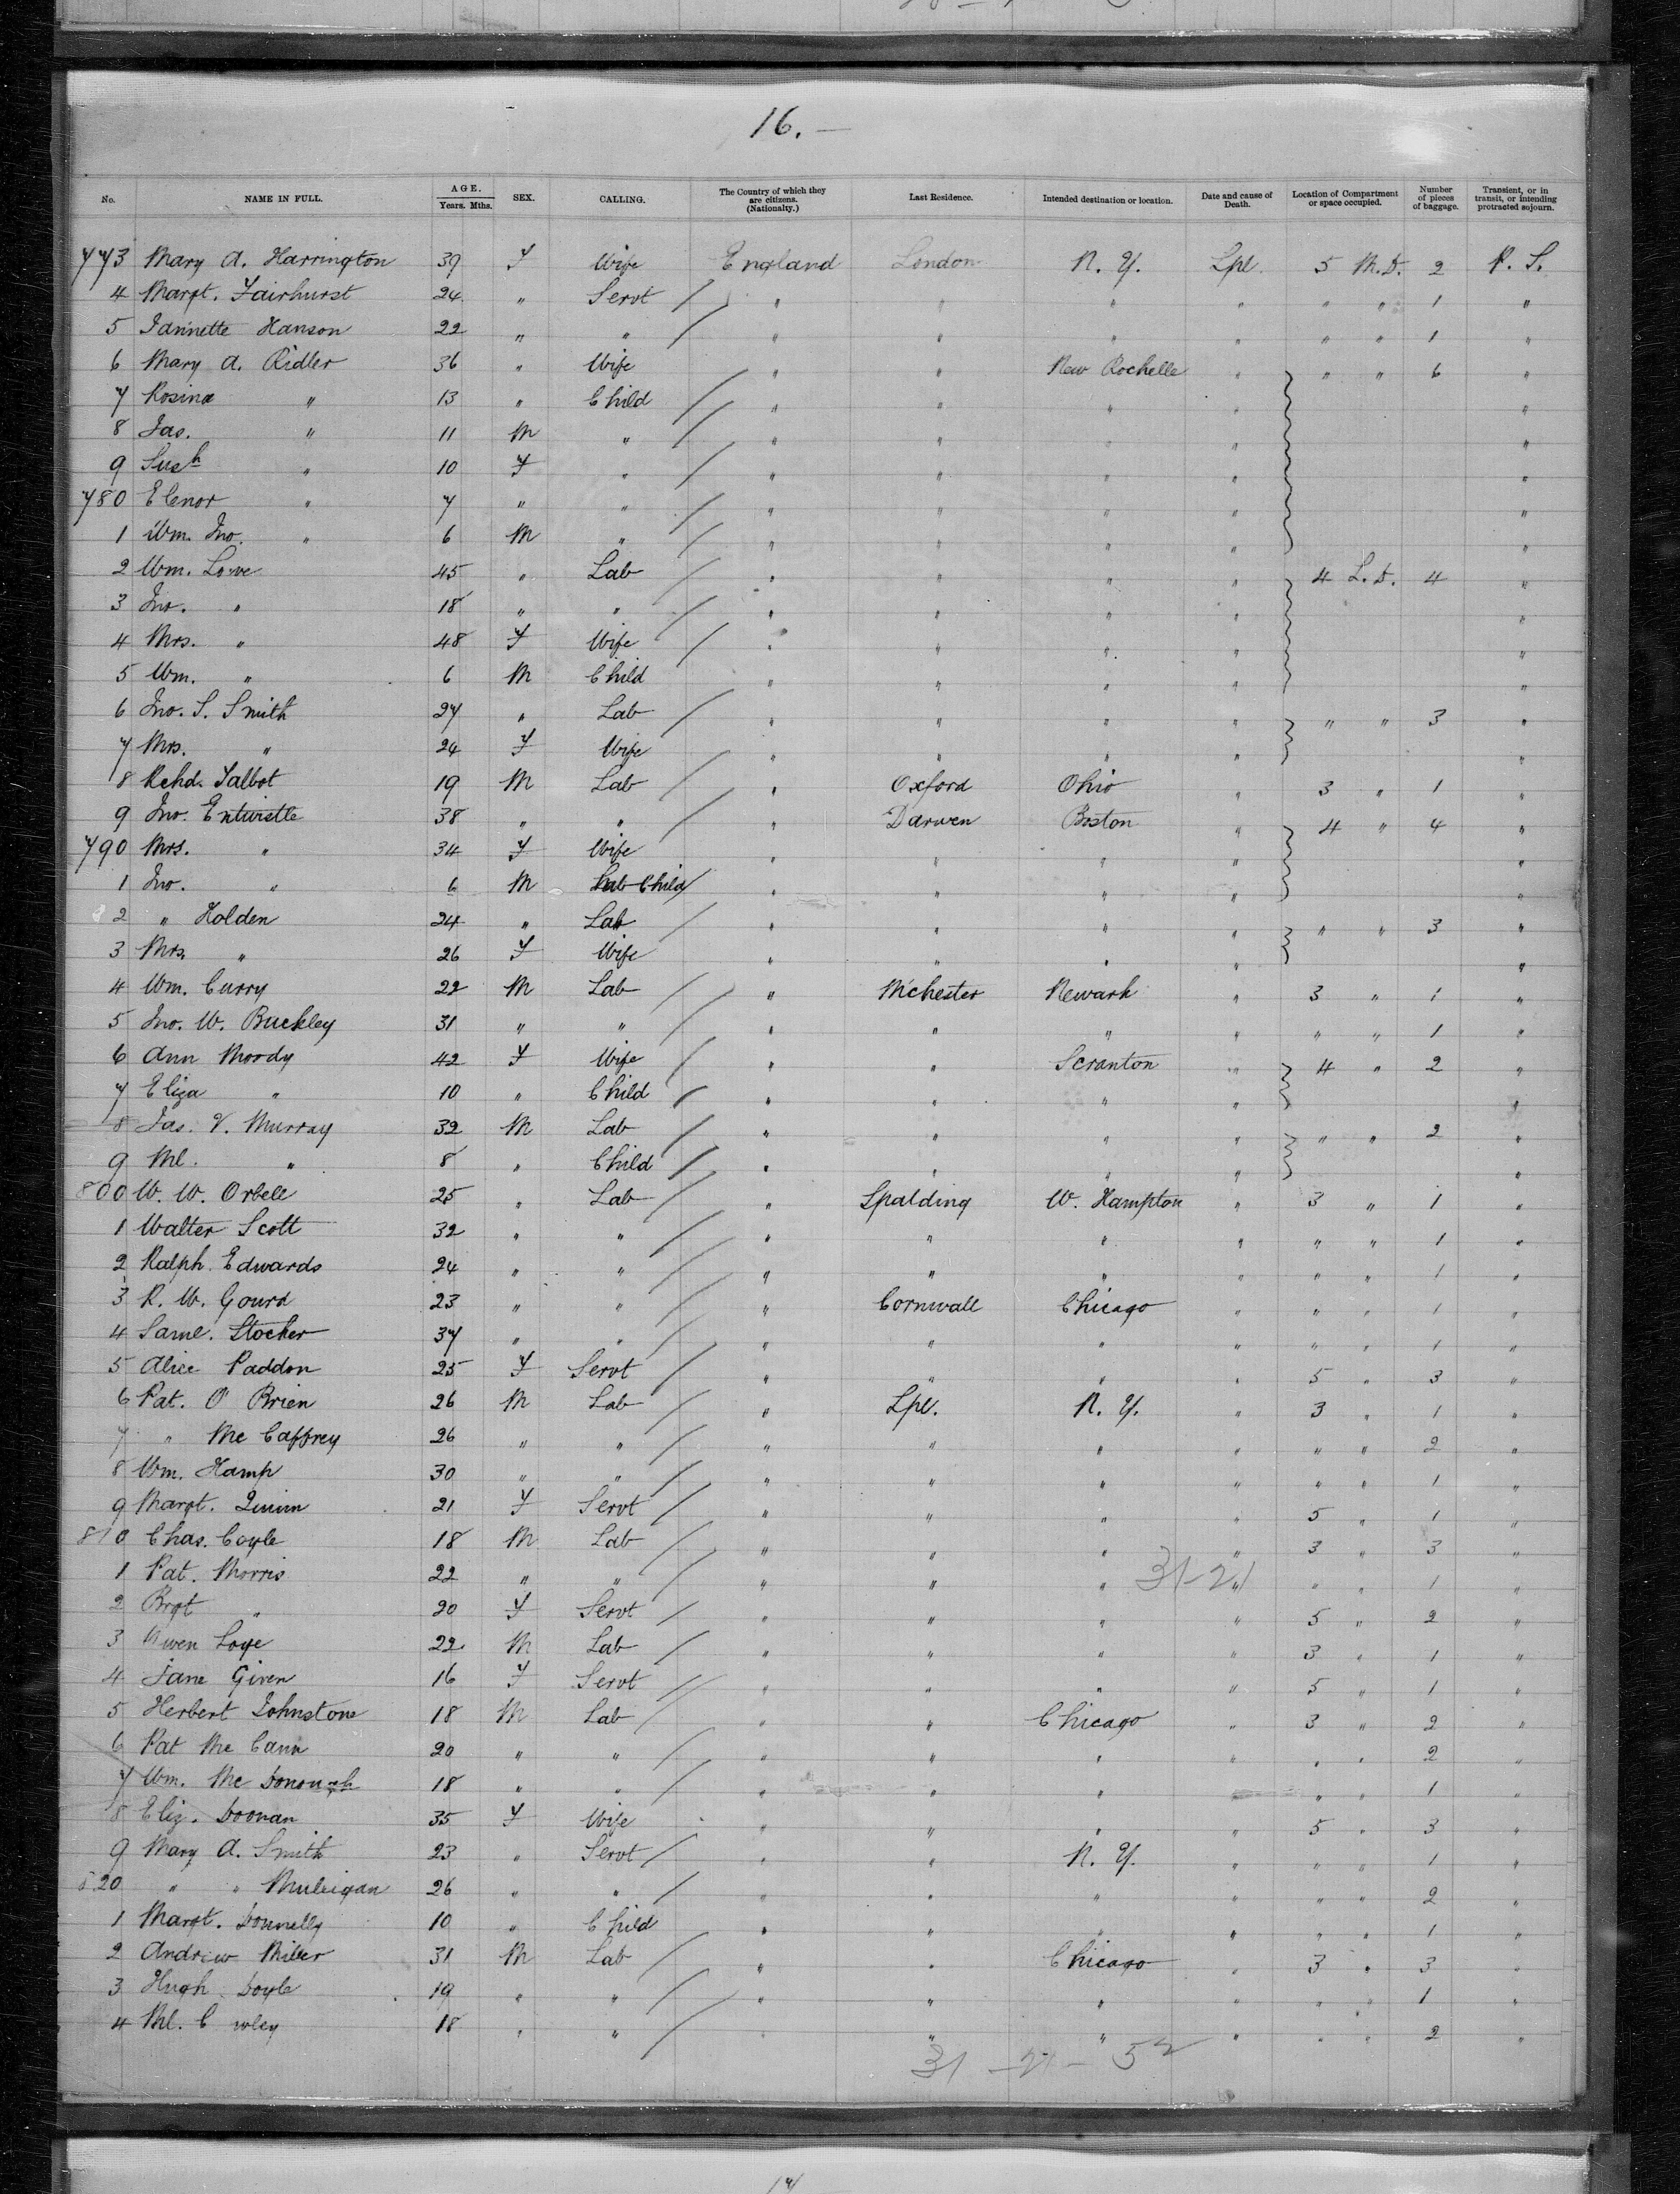 16.—
No. NAME IN FULL. AGE. Years. Mths. SEX. CALLING. The Country of which they are citizens. (Nationalty.) Last Residence. Intended destination or location. Date and cause of Death. Location of Compartment or space occupied. Number of pieces of baggage. Transient, or in transit, or intending protracted sojourn.
773 Mary A. Harrington 39 F Wife England London N. Y. Lpl. 5 M.D. 2 P. S.
4 Margt. Fairhurst 24 " Servt " " " " " " 1 "
5 Jannette Hanson 22 " " " " " " " " 1 "
6 Mary A. Ridler 36 " Wife " " New Rochelle " " " 6 "
7 Rosina " 13 " Child " " " " "
8 Jas. " 11 M " " " " " "
9 Sush " 10 F " " " " " "
780 Elenor " 7 " " " " " " "
1 Wm. Jno. " 6 M " " " " " "
2 Wm. Lowe 45 " Lab " " " " 4 L.D. 4 "
3 Jno. " 18 " " " " " " "
4 Mrs. " 48 F Wife " " " " "
5 Wm. " 6 M Child " " " " "
6 Jno. S. Smith 27 " Lab " " " " " " 3 "
7 Mrs. " 24 F Wife " " " " "
8 Rchd. Talbot 19 M Lab " Oxford Ohio " 3 " 1 "
9 Jno. Entwistle 38 " " " Darwen Boston " 4 " 4 "
790 Mrs. " 34 F Wife " " " " "
1 Jno. " 6 M Lab Child " " " " "
2 " Holden 24 " Lab " " " " " " 3 "
3 Mrs. " 26 F Wife " " " " "
4 Wm. Curry 22 M Lab " M'chester Newark " 3 " 1 "
5 Jno. W. Buckley 31 " " " " " " " " 1 "
6 Ann Moody 42 F Wife " " Scranton " 4 " 2 "
7 Eliza " 10 " Child " " " " "
8 Jas. V. Murray 32 M Lab " " " " " " 2 "
9 Ml. " 8 " Child " " " " "
800 W. W. Orbell 25 " Lab " Spalding W. Hampton " 3 " 1 "
1 Walter Scott 32 " " " " " " " " 1 "
2 Ralph Edwards 24 " " " " " " " " 1 "
3 R. W. Gourd 23 " " " Cornwall Chicago " " " 1 "
4 Saml. Stocker 37 " " " " " " " " 1 "
5 Alice Paddon 25 F Servt " " " " 5 " 3 "
6 Pat. O'Brien 26 M Lab " Lpl. N. Y. " 3 " 1 "
7 " Mc Caffrey 26 " " " " " " " " 2 "
8 Wm. Hamp 30 " " " " " " " " 1 "
9 Margt. Quinn 21 F Servt " " " " 5 " 1 "
810 Chas. Coyle 18 M Lab " " " " 3 " 3 "
1 Pat. Morris 22 " " " " " 31-21 " " " 1 "
2 Brgt " 20 F Servt " " " " 5 " 2 "
3 Owen Loye 22 M Lab " " " " 3 " 1 "
4 Jane Given 16 F Servt " " " " 5 " 1 "
5 Herbert Johnstone 18 M Lab " " Chicago " 3 " 2 "
6 Pat Mc Cann 20 " " " " " " " " 2 "
7 Wm. Mc Donough 18 " " " " " " " " 1 "
8 Eliz. Doonan 35 F Wife " " " " 5 " 3 "
9 Mary A. Smith 23 " Servt " " N. Y. " " " 1 "
820 " " Mulligan 26 " " " " " " " " 2 "
1 Margt. Donnelly 10 " Child " " " " " " 1 "
2 Andrew Miller 31 M Lab " " Chicago " 3 " 3 "
3 Hugh Doyle 19 " " " " " " " " 1 "
4 Ml. 18 " " " " " " " 2 "
31 - 21 - 52